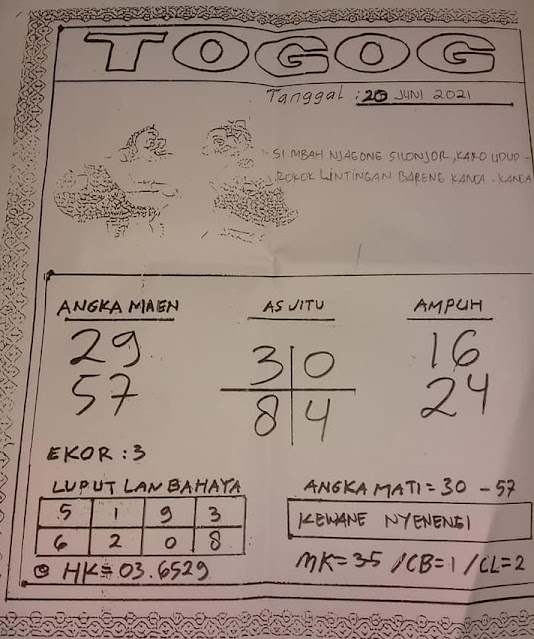 TOGOG
Tanggal : 20 JUNI 2021
SI MBAH NJAGONG SILONJOR, KARO UDUD -
ROKOK LINTINGAN BARENG KANCA - KANCA
ANGKA MAEN AS JITU AMPUH
29 3 0 16
57 8 4 24
EKOR : 3
LUPUT LAN BAHAYA ANGKA MATI = 30 - 57
5 1 9 3 KEWANE NYENENGI
6 2 0 8
HK = 03.6529 MK = 35 / CB = 1 / CL = 2